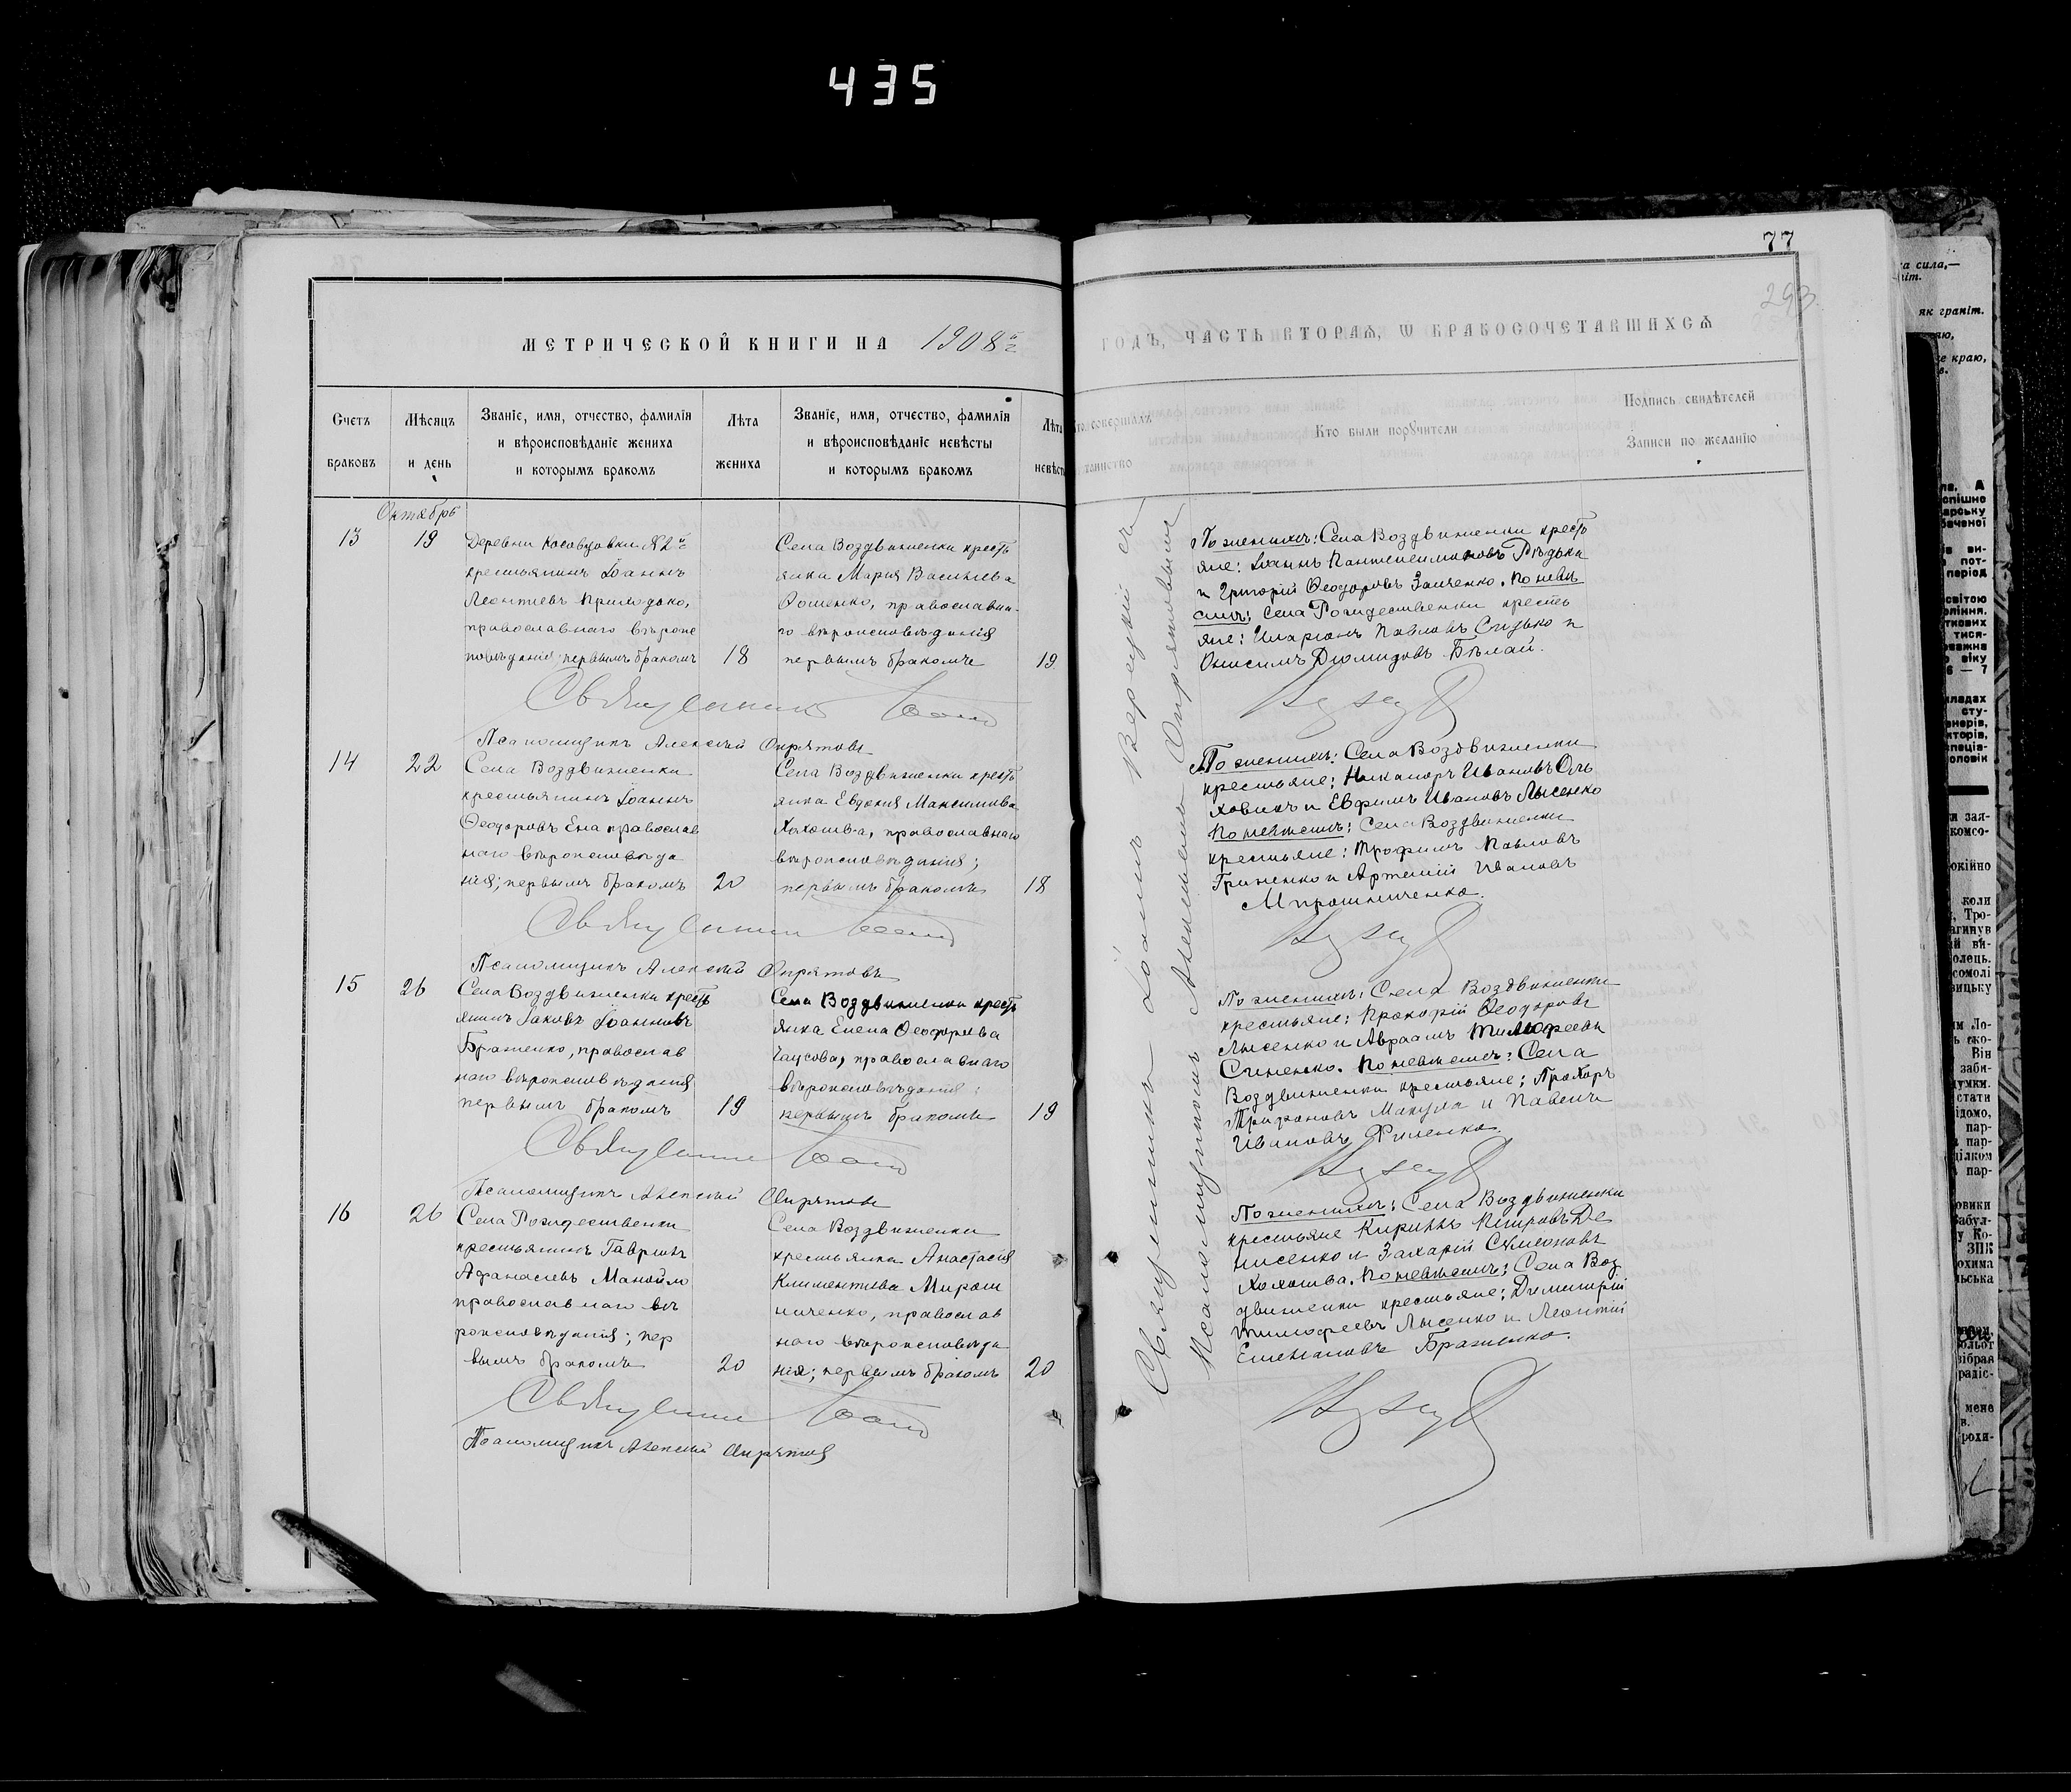 435
77
293
МЕТРИЧЕСКОЙ КНИГИ НА 1908й г.
ГОДЪ, ЧАСТЬ ВТОРАЯ, Ѡ БРАКОСОЧЕТАВШИХСЯ
Счетъ браковъ
Мѣсяцъ и день
Званіе, имя, отчество, фамилія
и вѣроисповѣданіе жениха
и которымъ бракомъ
Лѣта жениха
Званіе, имя, отчество, фамилія
и вѣроисповѣданіе невѣсты
и которымъ бракомъ
Лѣта
невѣст
совершалъ
таинство
Кто были поручители
Подпись свидѣтелей
Записи по желанію
Октябрь
13
19
Деревни
крестьянинъ Іоаннъ
Леонтіевъ Приходько,
православнаго вѣроис
повѣданія, первымъ бракомъ
18
Села Воздвиженки кресть
янка Марія Васильева
православна-
го вѣроисповѣданія
первымъ бракомъ
19
По женихѣ: Села Воздвиженки кресть
яне: Іоаннъ Пантелеимоновъ Рѣдька
и Григорій Ѳеодоровъ Заиченко. По невѣ
стѣ: Села Рождественки кресть
яне: Иларіонъ Павловъ Сидько и
Онисимъ Діомидовъ Бѣлай.
Священникъ Іоаннъ
Псаломщикъ Алексѣй Опрятовъ
14
22
Села Воздвиженки
крестьянинъ Іоаннъ
Ѳеодоровъ Ена православ
наго вѣроисповѣда
нія; первымъ бракомъ
20
Села Воздвиженки кресть
янка Евдокія Максимова
Хохотва, православнаго
вѣроисповѣданія;
первымъ бракомъ
18
По женихѣ: Села Воздвиженки
крестьяне: Никаноръ Ивановъ Оль
ховикъ и Евфимъ Ивановъ Лысенко
По невѣстѣ: Села Воздвиженки
крестьяне: Трофимъ Павловъ
Гриненко и Артемій Ивановъ
Мирошниченко.
Священникъ Іоаннъ
Псаломщикъ Алексѣй Опрятовъ
15
26
Села Воздвиженки кресть
янинъ Іаковъ Іоанновъ
Браженко, православ
наго вѣроисповѣданія
первымъ бракомъ
19
Села Воздвиженки кресть
янка Елена Ѳеодорова
Чаусова, православнаго
вѣроисповѣданія;
первымъ бракомъ
19
По женихѣ: Села Воздвиженки
крестьяне: Прокопій Ѳеодоровъ
Лысенко и Авраамъ Тимофеевъ
По невѣстѣ: Села
Воздвиженки крестьяне: Прохоръ
Трифоновъ и Павелъ
Ивановъ
Священникъ Іоаннъ
Псаломщикъ Алексѣй Опрятовъ
16
26
Села Рождественки
крестьянинъ Гавріилъ
Афанасіевъ Манойло
православнаго вѣ
роисповѣданія; пер
вымъ бракомъ
20
Села Воздвиженки
крестьянка Анастасія
Климентіева Мирош
ниченко, православ
наго вѣроисповѣда
нія; первымъ бракомъ
20
По женихѣ: Села Воздвиженки
крестьяне Кириллъ Петровъ Де
нисенко и Захарій Симеоновъ
Хохотва. По невѣстѣ: Села Воз
движенки крестьяне: Димитрій
Тимофеевъ Лысенко и Леонтій
Емельяновъ Браженко.
Священникъ Іоаннъ
Псаломщикъ Алексѣй Опрятовъ
Священникъ Іоаннъ
Псаломщикъ Алексѣй Опрятовъ